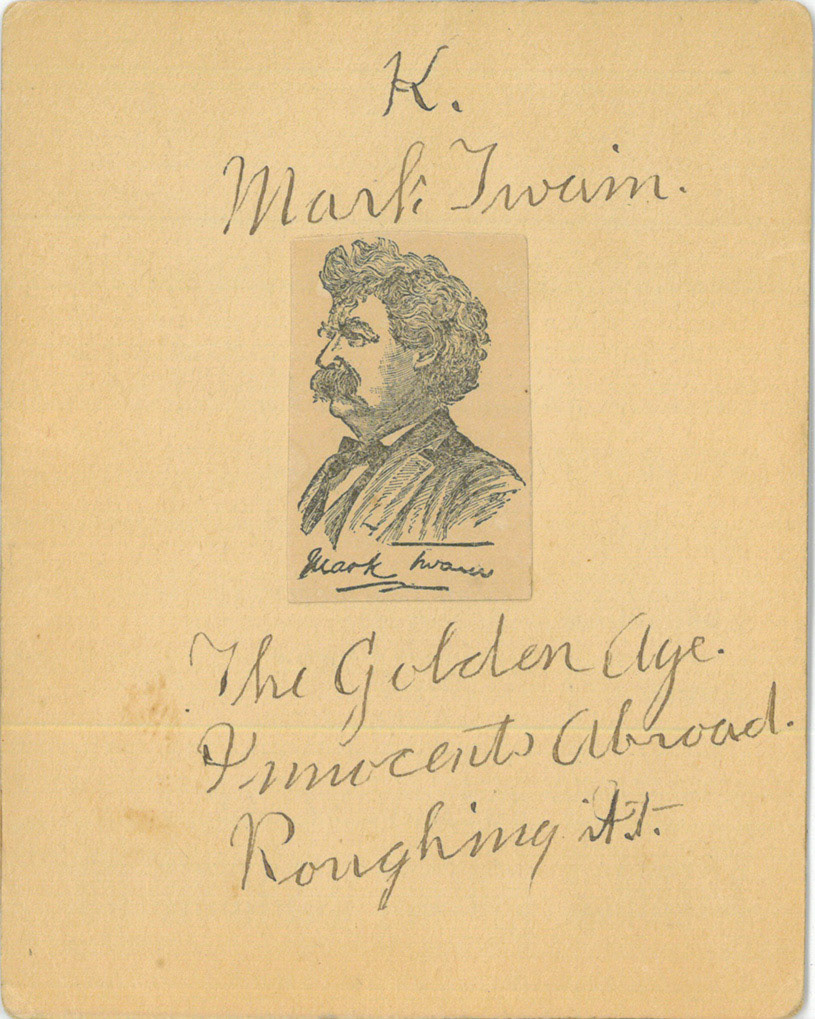 K.
Mark Twain.
Mark Twain
The Golden Age.
Innocents Abroad.
Roughing It.